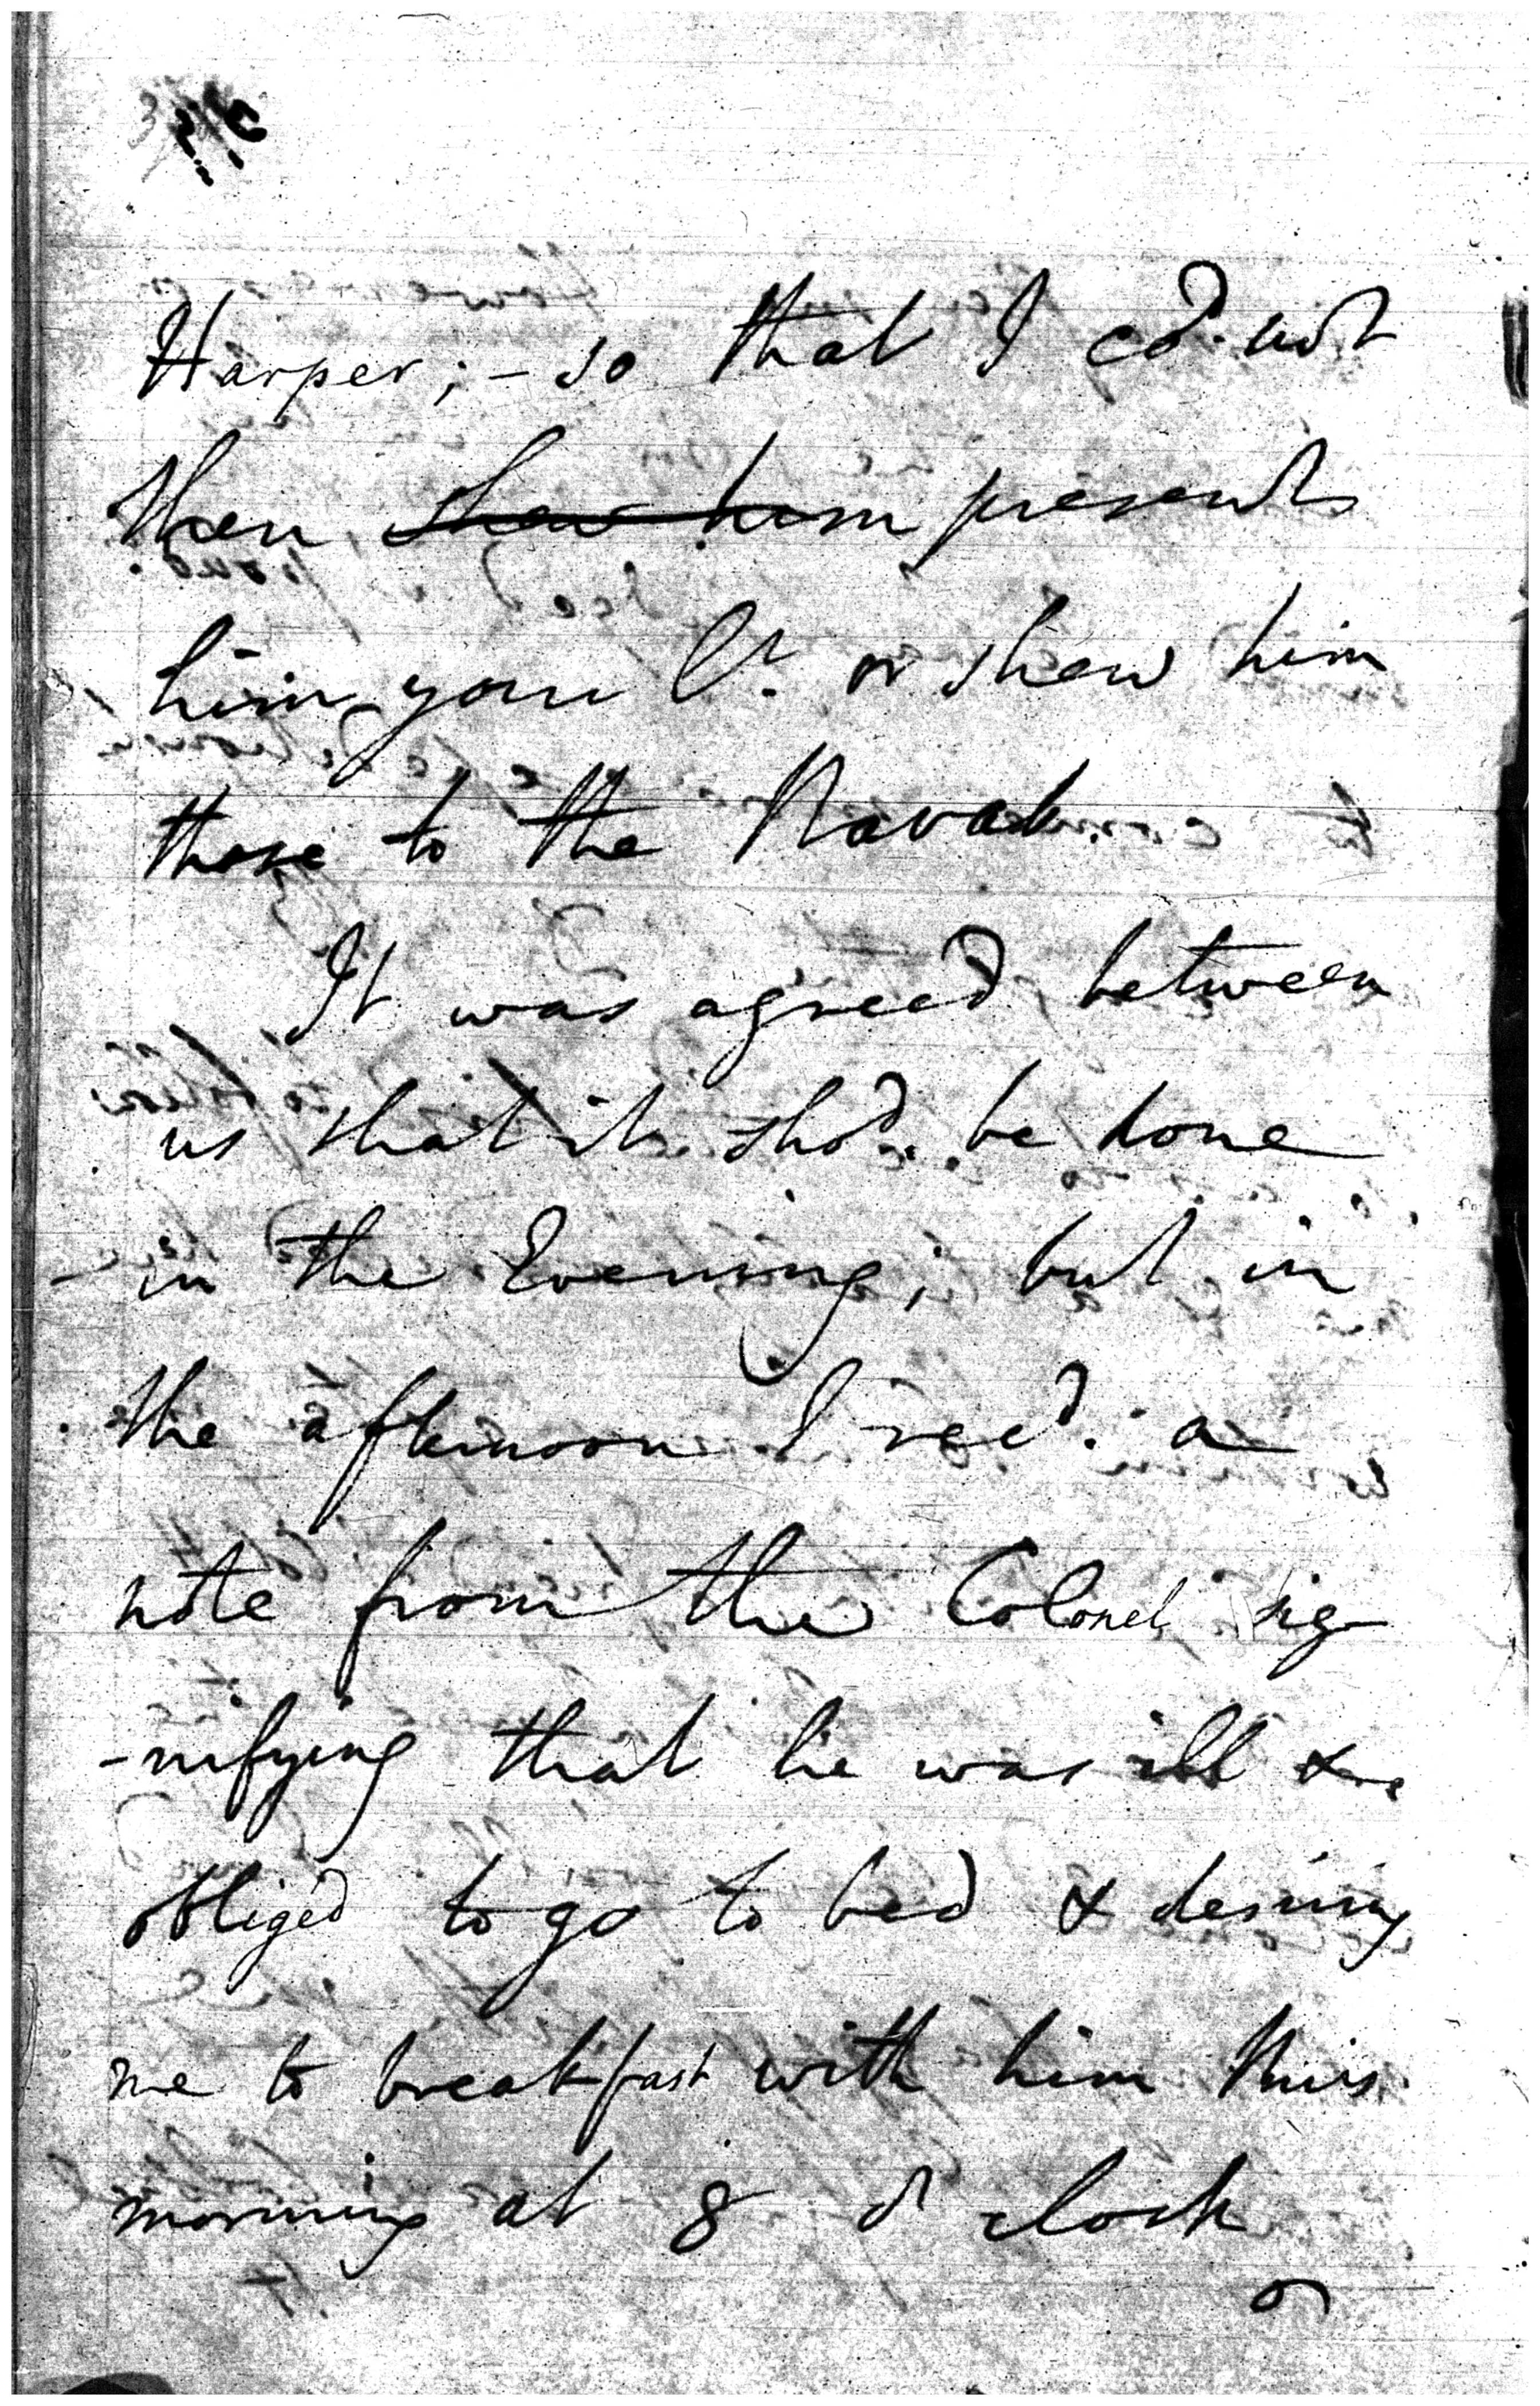 Harper; - so that I cd. not
then shew him presents
him your Lr. or shew him
those to the Navab.
It was agreed between
us that it shod. be done
in the Evening; but in
the afternoon I recd. a
note from the Colonel sig-
-nifying that he was ill &
obliged to go to bed & desiring
me to breakfast with him this
morning at 8 o clock
or